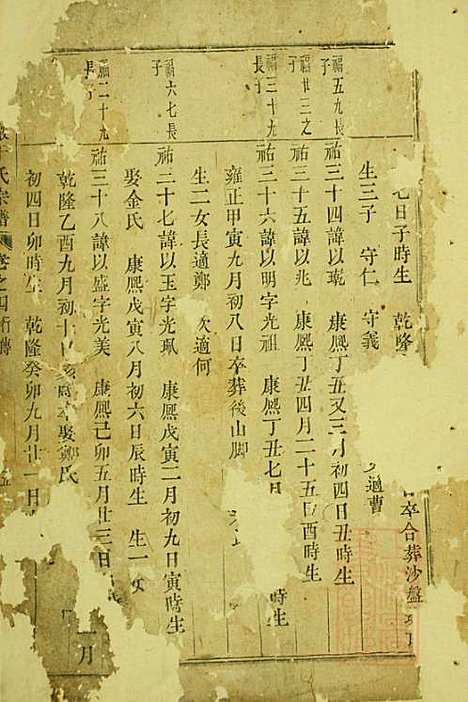 七日子時生 乾隆 卒合葬沙盤
生三子 守仁 守義 適曹
福五九長子 祐三十四諱以珖 康熙丁丑又三月初四日丑時生
福廿三之子 祐三十五諱以兆 康熙丁丑四月二十五日酉時生
福三十九長子 祐三十六諱以明字光祖 康熙丁丑七月 時生
雍正甲寅九月初八日卒葬後山脚
生二女長適鄭 次適何
福六七長子 祐三十七諱以玉字光珮 康熙戊寅二月初九日寅時生
娶金氏 康熙戊寅八月初六日辰時生 生一女
福二十九長子 祐三十八諱以盛字光美 康熙己卯五月廿三日
乾隆乙酉九月初十日 娶鄭氏 月
初四日卯時生 乾隆癸卯九月廿一日
氏宗譜 卷之四 行傳